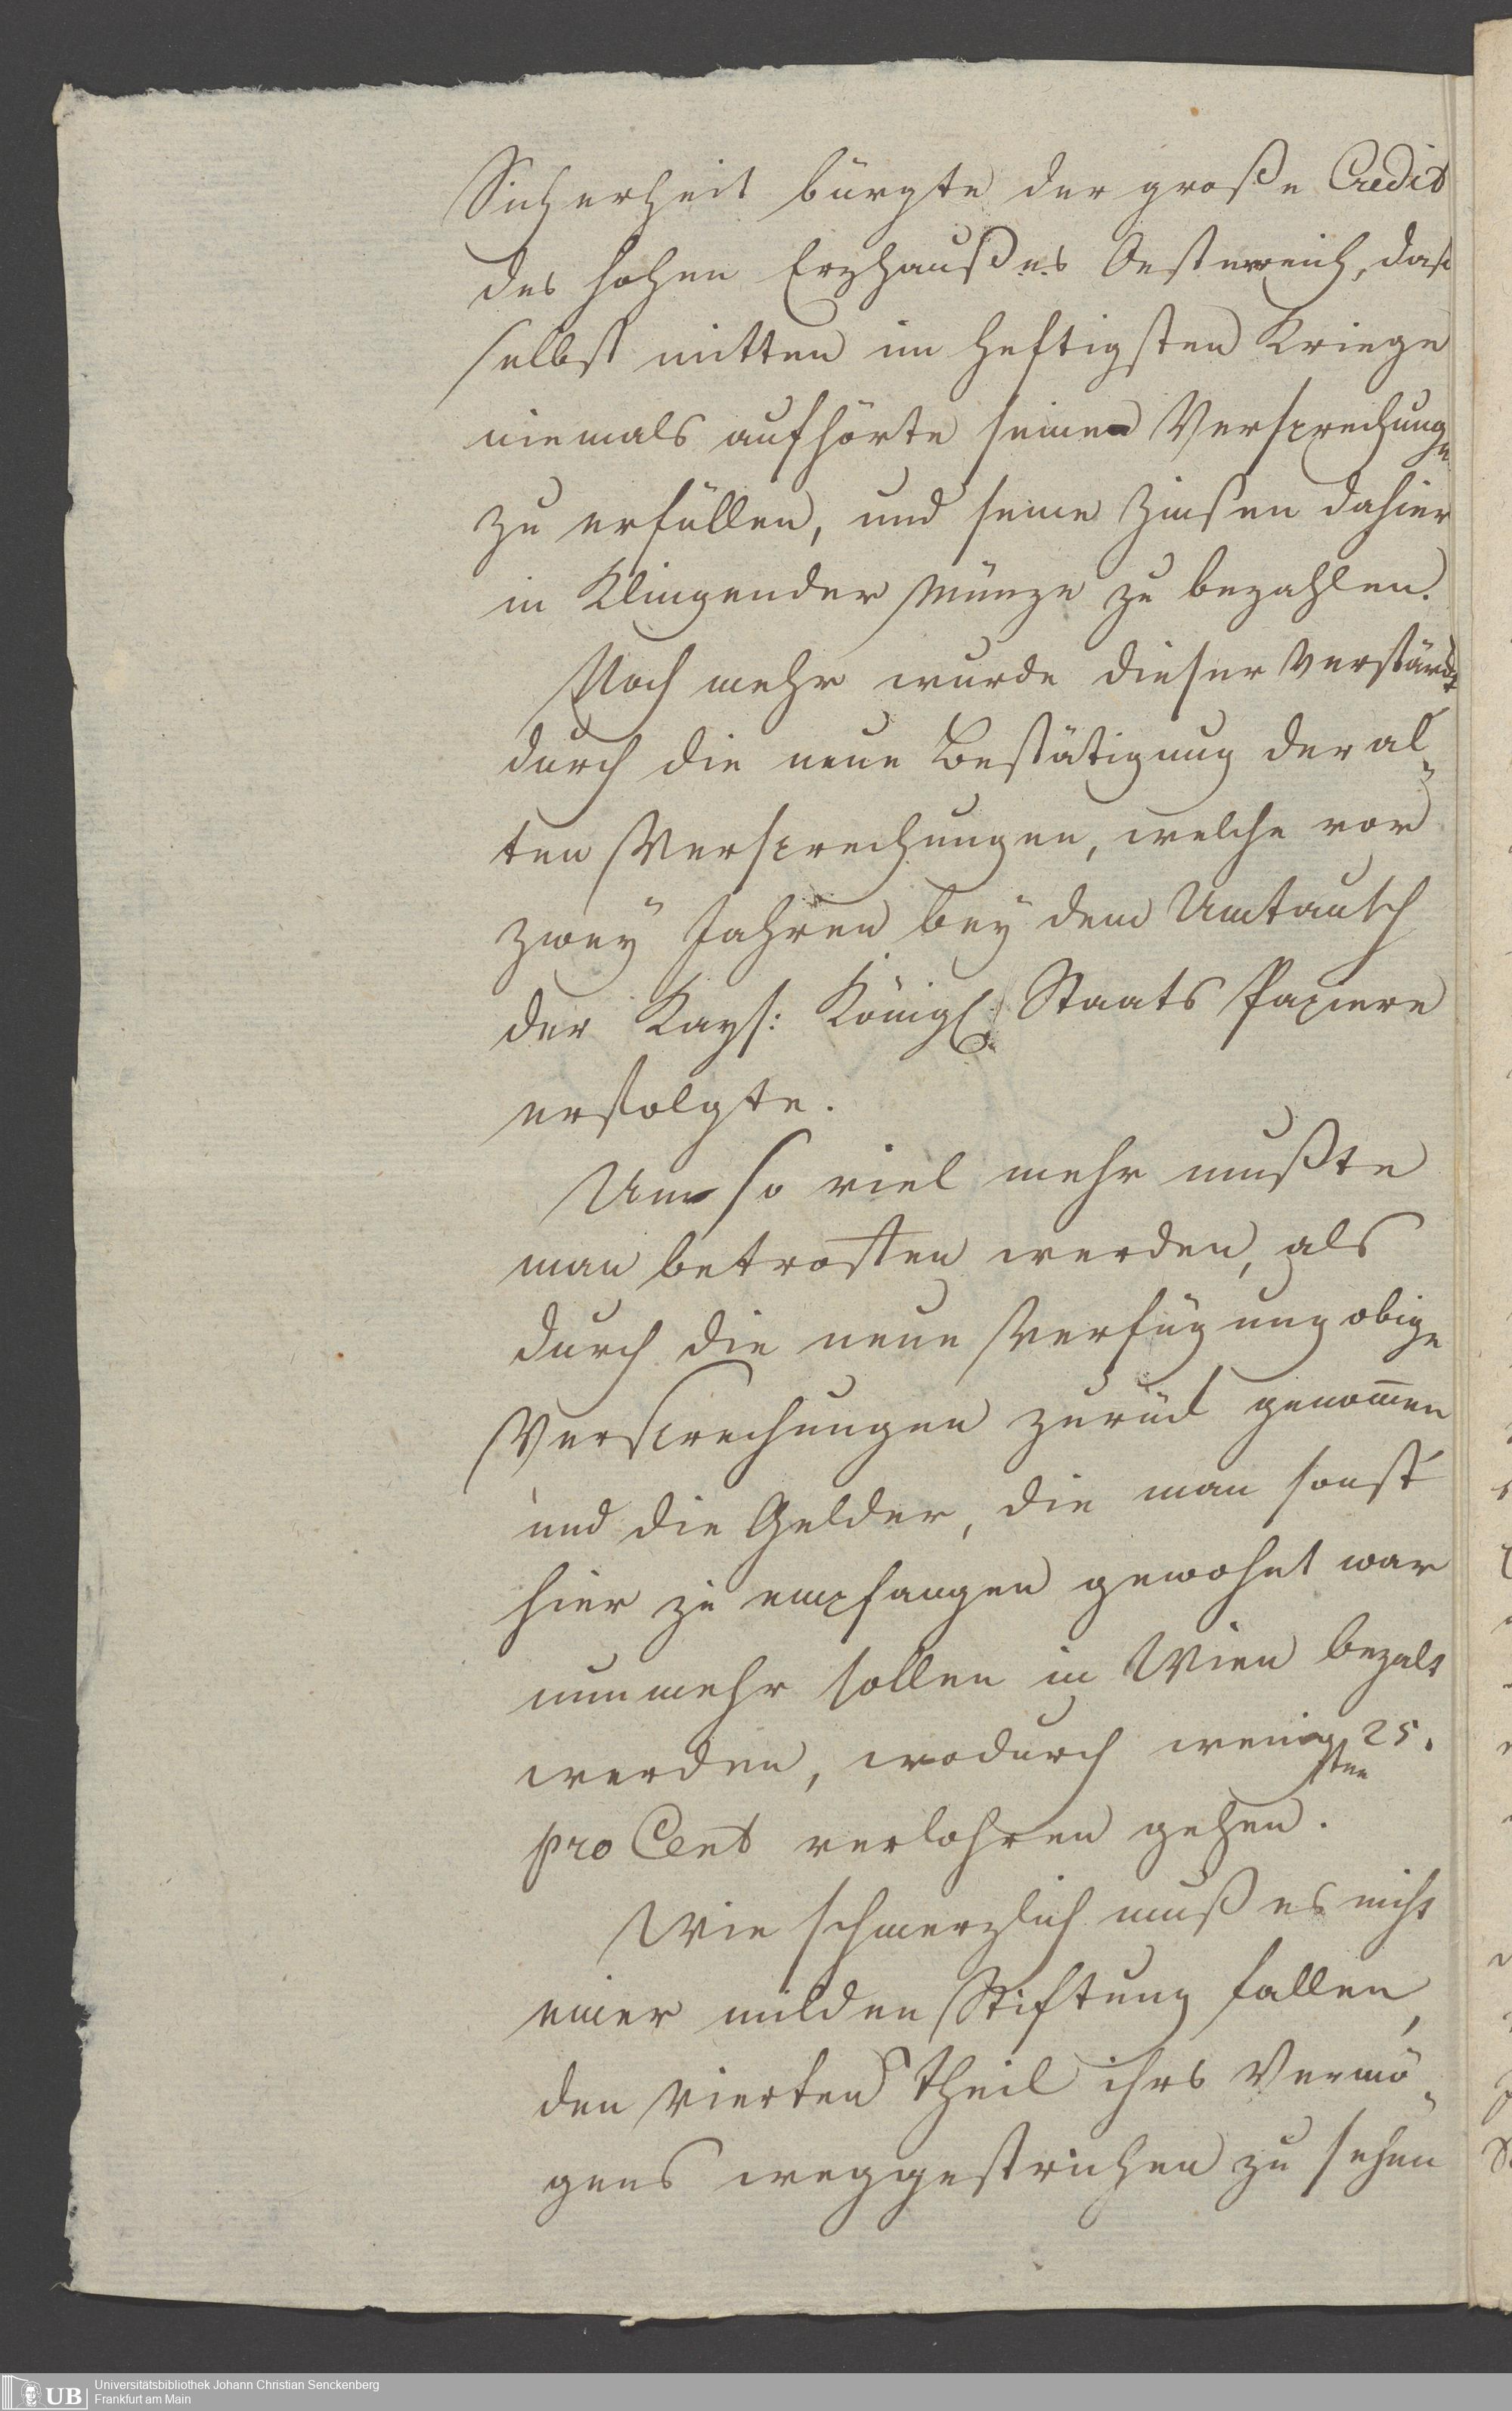 Sicherheit bürgte der große Credit
des hohen Erzhaußes Oesterreich, das
selbst mitten im heftigsten Kriege
niemals aufhörte seine Versprechungen
zu erfüllen, und seine Zinsen dahier
in Klingender Münze zu bezahlen.
Noch mehr wurde dieser verstärckt
durch die neue Bestätigung der al„
ten Versprechungen, welche vor
zwey Jahren bey dem Umtausch
der Kays: Königl: Staats Papiere
erfolgte.
Um so viel mehr mußte
man betroffen werden, als
durch die neue Verfügung obige
Versprechungen zurück genom̅en
und die Gelder, die man sonst
hier zu empfangen gewohnt war
nunmehr sollen in Wien bezalt
werden, wodurch wenigsten 25.
pro Cent verlohren gehen.
Wie schmerzlich muß es nicht
einer milden Stiftung fallen,
den vierten theil ihrs Vermö„
gens weggestrichen zu sehen
UB Universitätsbibliothek Johann Christian Senckenberg
Frankfurt am Main